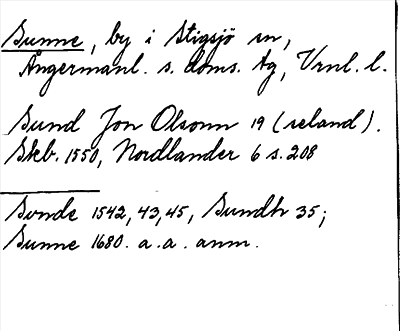 Sunne, by i Stigsjö sn,
Ångermanl. s. doms. tg, Vrnl. l.
Sund Jon Olsonn 19 (seland).
Skb. 1550, Nordlander 6 s. 208
Sonde 1542, 43, 45, Sundh 35;
Sunne 1680. a. a. anm.